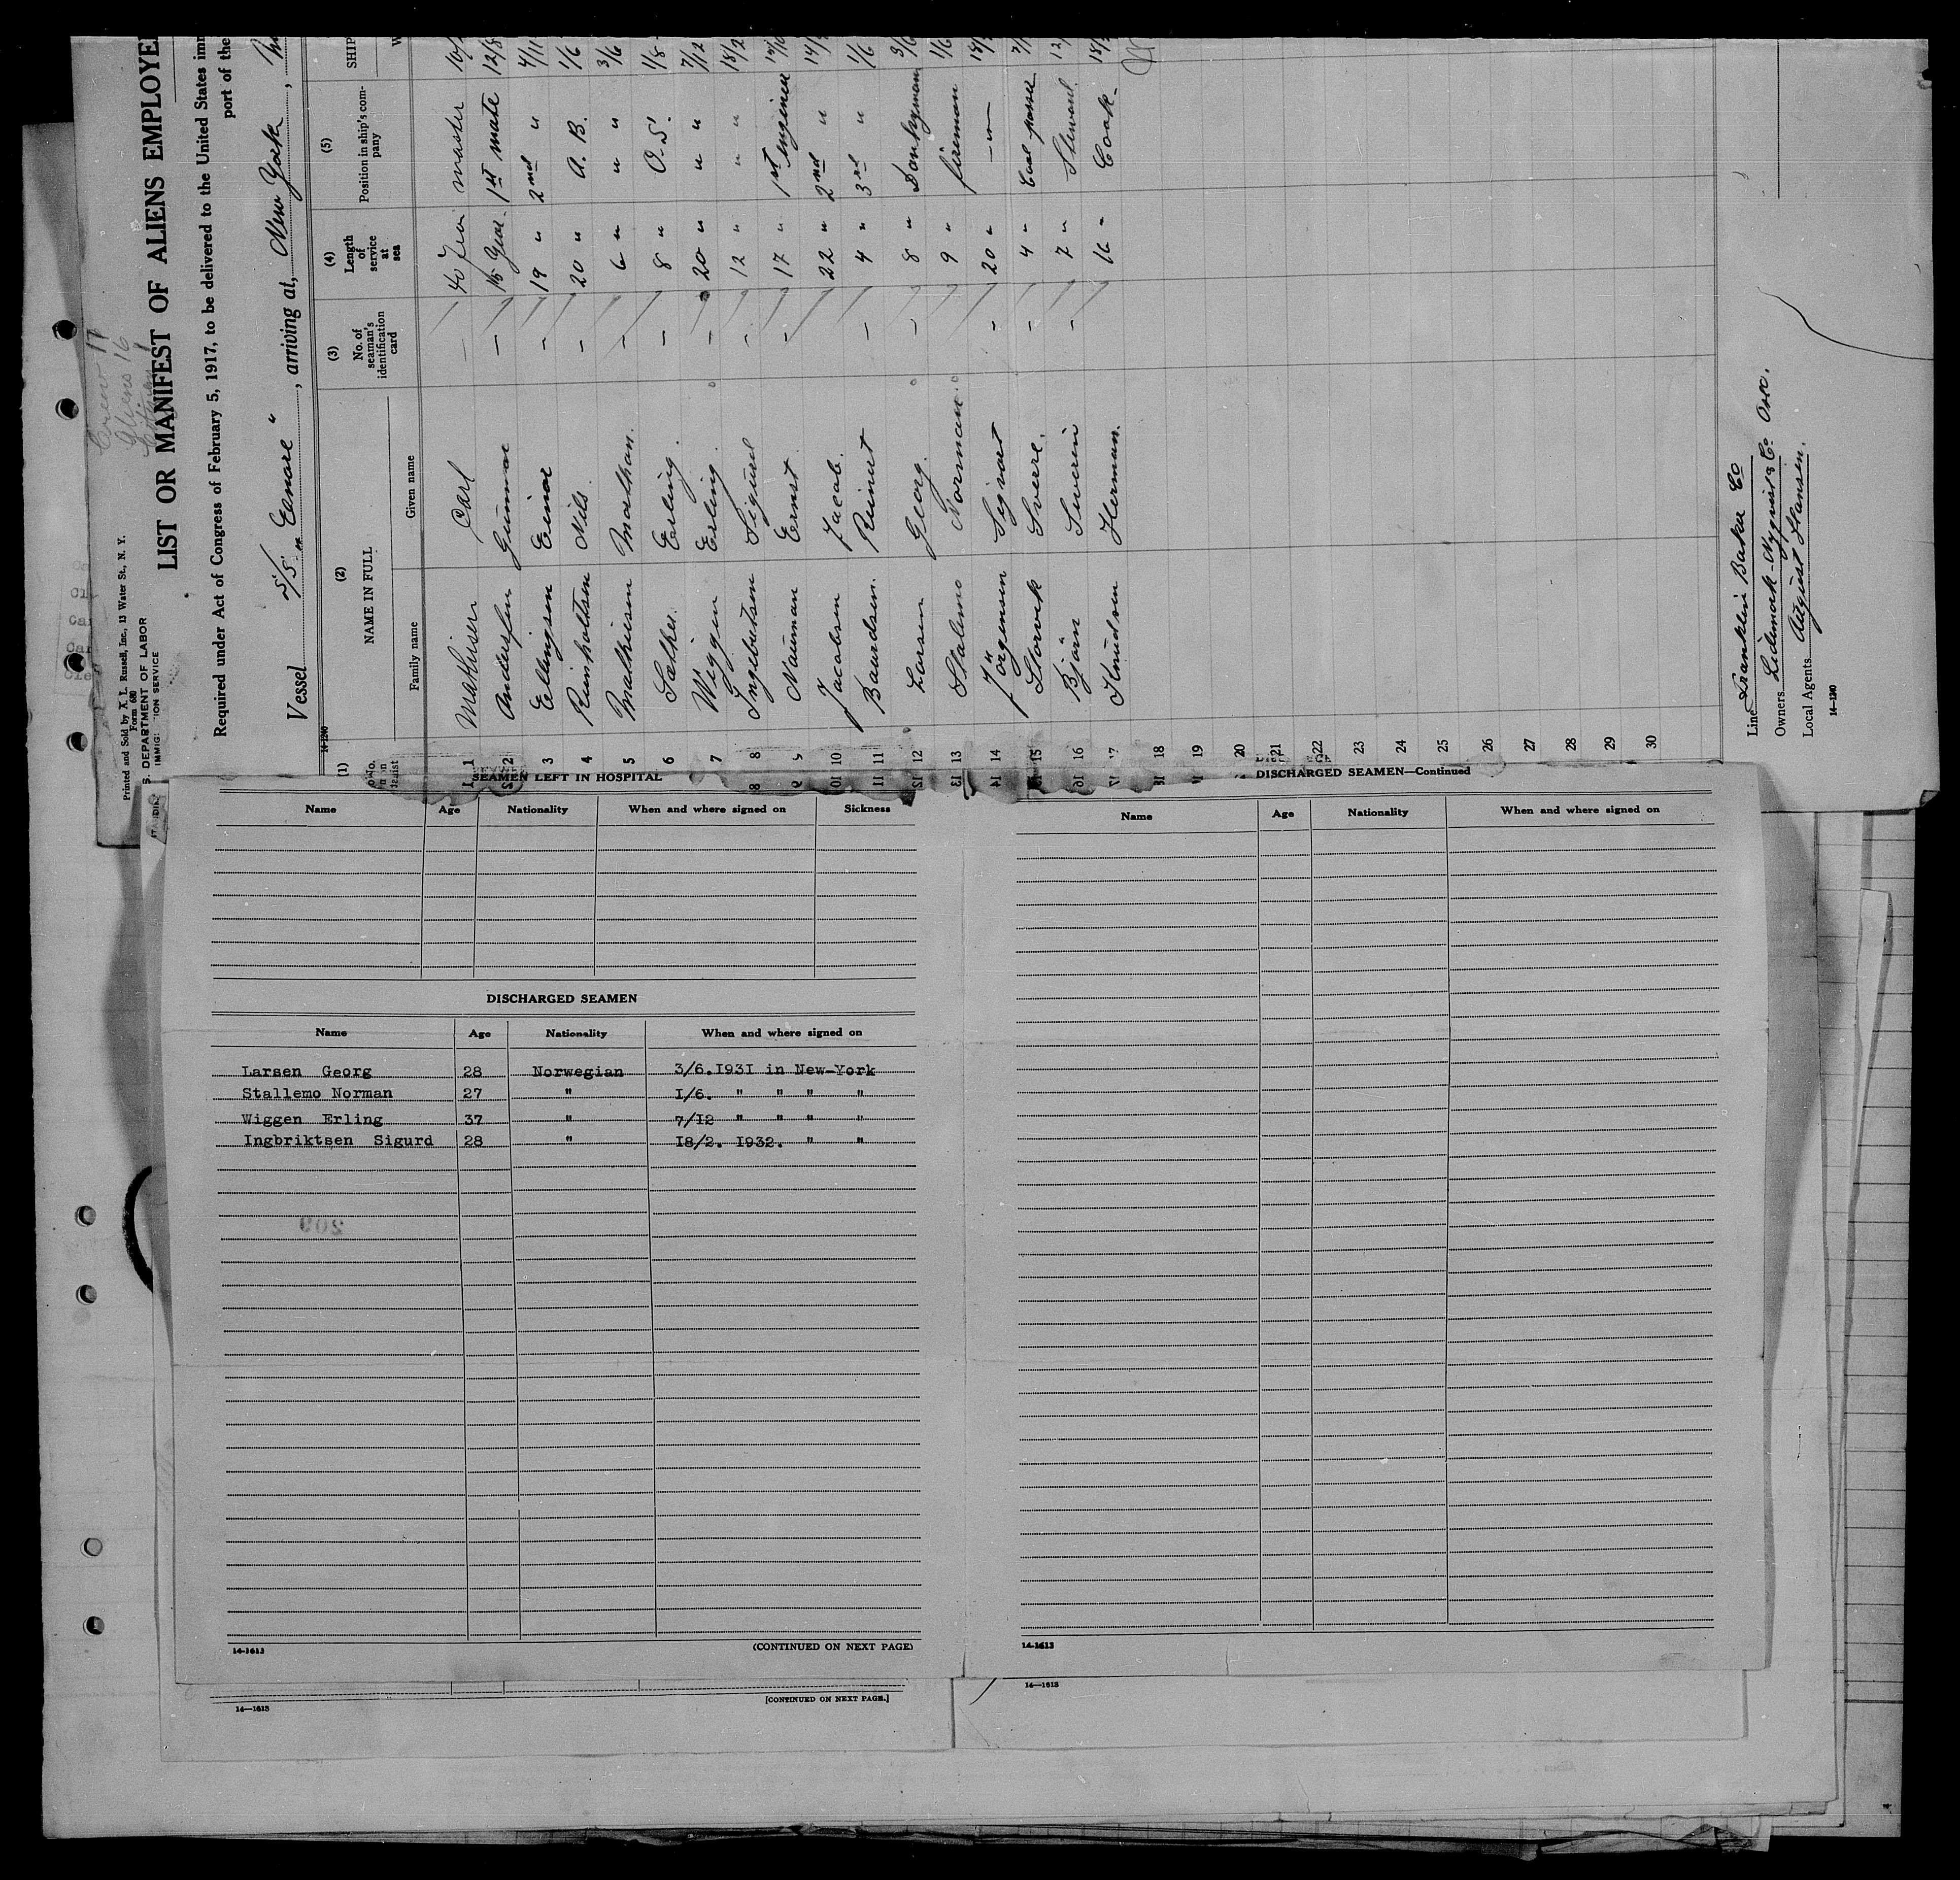 Crew 17
Aliens 16
Printed and Sold by X. L. Russell, Inc., 13 Water St., N. Y.
Form 680
S. DEPARTMENT OF LABOR
IMMIG
ION SERVICE
LIST OR MANIFEST OF ALIENS EMPLOYE
Required under Act of Congress of February 5, 1917, to be delivered to the United States imm
port of the
Vessel S/S. "Eenore", arriving at, New York,
14-1240
(1) (2) (3) (4) (5)
NAME IN FULL No. of seaman's identification card Length of service at sea Position in ship's company SHIP
Family name Given name
1 Mathisen Carl — 40 Year master
2 Anderssen Gunnar — 15 Year. 1st mate 12/8
3 Ellingsen Einar — 19 " 2nd " 4/11
4 Reinholtsen Nils. — 20 " A. B. 1/6
5 Mathiesen Mathan. — 6 " " " 3/6
6 Sæther. Erling. — 8 " O. S. 1/8
7 Wiggen Erling. — 20 " " " 7/12
8 Ingebritsen Sigurd — 12 " " " 18/2
9 Nauman Ernst. — 17 " 1st engineer
10 Jacobsen Jacob. 22 " 2nd "
11 Baurdsen. Reinert — 4 " 3rd " 1/6
12 Larsen Georg. — 8 " Donkeyman 3/6
13 Stalemo Norman. 9 " fireman 1/6
14 Jörgensen Sigvart — 20 " —"—
15 Storvik Sverre. — 4 " Coal passer
16 Bjärn Severin — 7 " Steward
17 Knudsen Herman. 16 " Cook.
18
19
20
21
22
23
24
25
26
27
28
29
30
Line Franklin Baker Co
Owners
Local Agents August Hansen.
14-1240
SEAMEN LEFT IN HOSPITAL
Name Age Nationality When and where signed on Sickness
DISCHARGED SEAMEN
Name Age Nationality When and where signed on
Larsen Georg 28 Norwegian 3/6.I93I in New-York
Stallemo Norman 27 " I/6. " " " "
Wiggen Erling 37 " 7/I2 " " " "
Ingbriktsen Sigurd 28 " I8/2. I932. " "
14-1613 (CONTINUED ON NEXT PAGE)
14—1613 [CONTINUED ON NEXT PAGE.]
DISCHARGED SEAMEN—Continued
Name Age Nationality When and where signed on
14-1613
14—1613